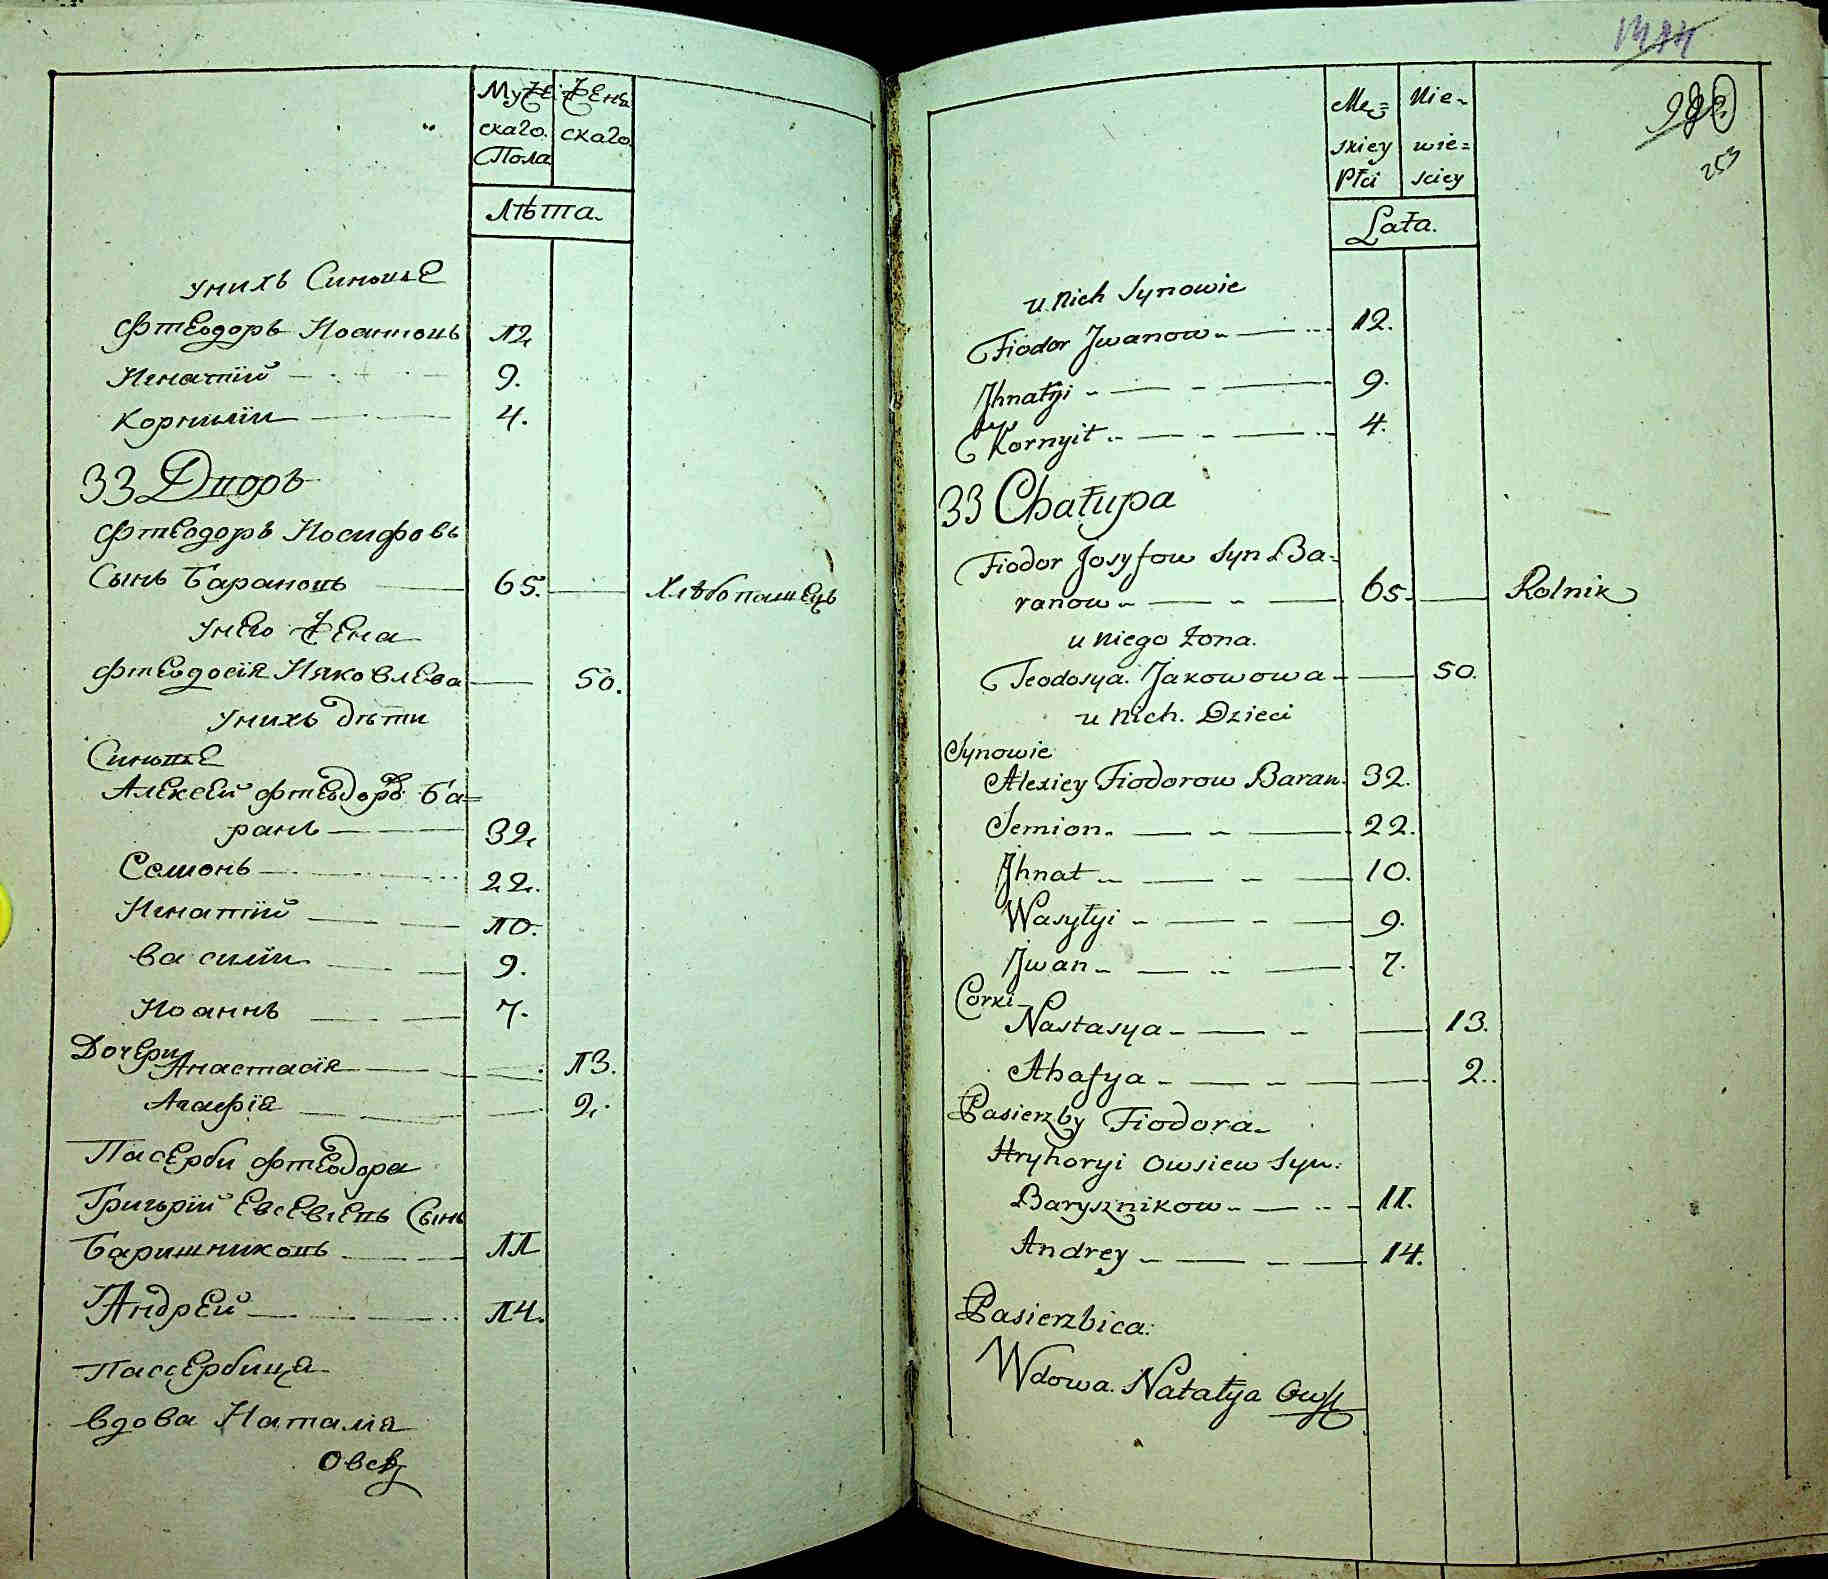 Мужe
скаго.
Пола
Жень
скаго
Лѣта.
унихъ Синовье
Фтеодоръ Иоанновъ 12
Игнатїй 9.
Корнилїи 4.
33 Дворъ
Фтеодоръ Иосифовъ
Сынъ Барановъ 65. Хлѣбопашецъ
унего Жена
Фтеодосїя Ияковлева 50.
унихъ дѣти
Синовье
Алексей Фтеодоръ Ба=
ранъ 32.
Семонъ 22.
Игнатїй 10.
Василїи 9.
Иоаннъ 7.
Дочери
Анастасїя 13.
Агафїя 2.
Пасерби Фтеодора
Григорїй Евсевіевъ Сынъ
Баришниковъ 11
Андрей 14.
Пассербица
вдова Наталія
Овсѣ
1344
253
Mę=
skiey
Płci
Nie-
wie=
sciey
Lata.
u Nich Synowie
Fiodor Jwanow 12.
Jhnatyi 9.
Kornyił 4.
33 Chałupa
Fiodor Josyfow Syn Ba=
ranow 65. Rolnik
u Niego Żona.
Teodosya. Jakowowa 50.
u Nich. Dzieci
Synowie
Alexiey Fiodorow Baran. 32.
Semion. 22.
Jhnat 10.
Wasyłyi 9.
Jwan 7.
Corki
Nastasya 13.
Ahafya 2.
Pasierzby Fiodora
Hryhoryi Owsiew Syn:
Barysznikow 11.
Andrey 14.
Pasierzbica:
Wdowa. Natałya Ows